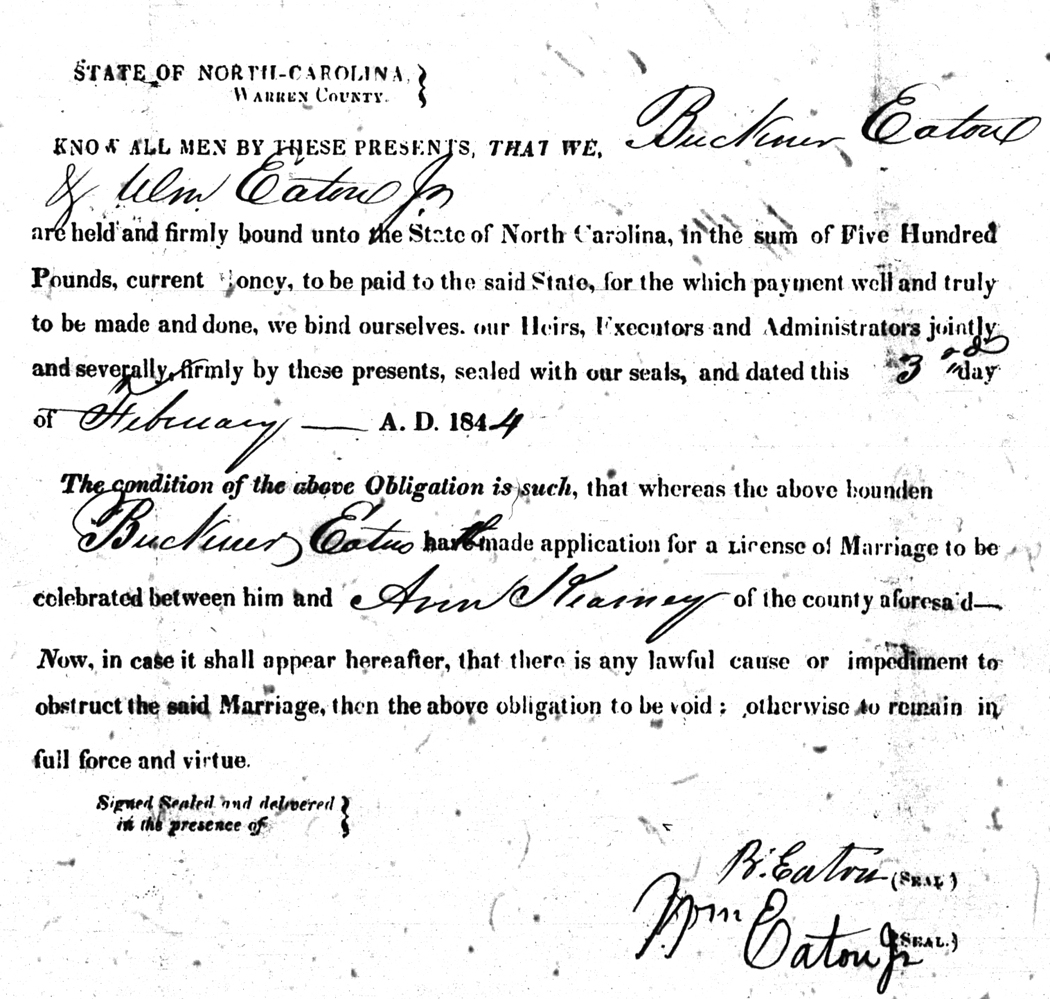 STATE OF NORTH-CAROLINA,
WARREN COUNTY.
KNOW ALL MEN BY THESE PRESENTS, THAT WE, Buckner Eaton
& Wm Eaton Jr
are held and firmly bound unto the State of North Carolina, in the sum of Five Hundred
Pounds, current Money, to be paid to the said State, for the which payment well and truly
to be made and done, we bind ourselves. our Heirs, Executors and Administrators jointly
and severally, firmly by these presents, sealed with our seals, and dated this 3rd day
of February — A. D. 1844
The condition of the above Obligation is such, that whereas the above bounden
Buckner Eaton hath made application for a License of Marriage to be
celebrated between him and Ann Kearney of the county aforesa'd—
Now, in case it shall appear hereafter, that there is any lawful cause or impediment to
obstruct the said Marriage, then the above obligation to be void; otherwise to remain in
full force and virtue.
Signed Sealed and delivered
in the presence of
B. Eaton (SEAL)
Wm Eaton Jr (SEAL.)